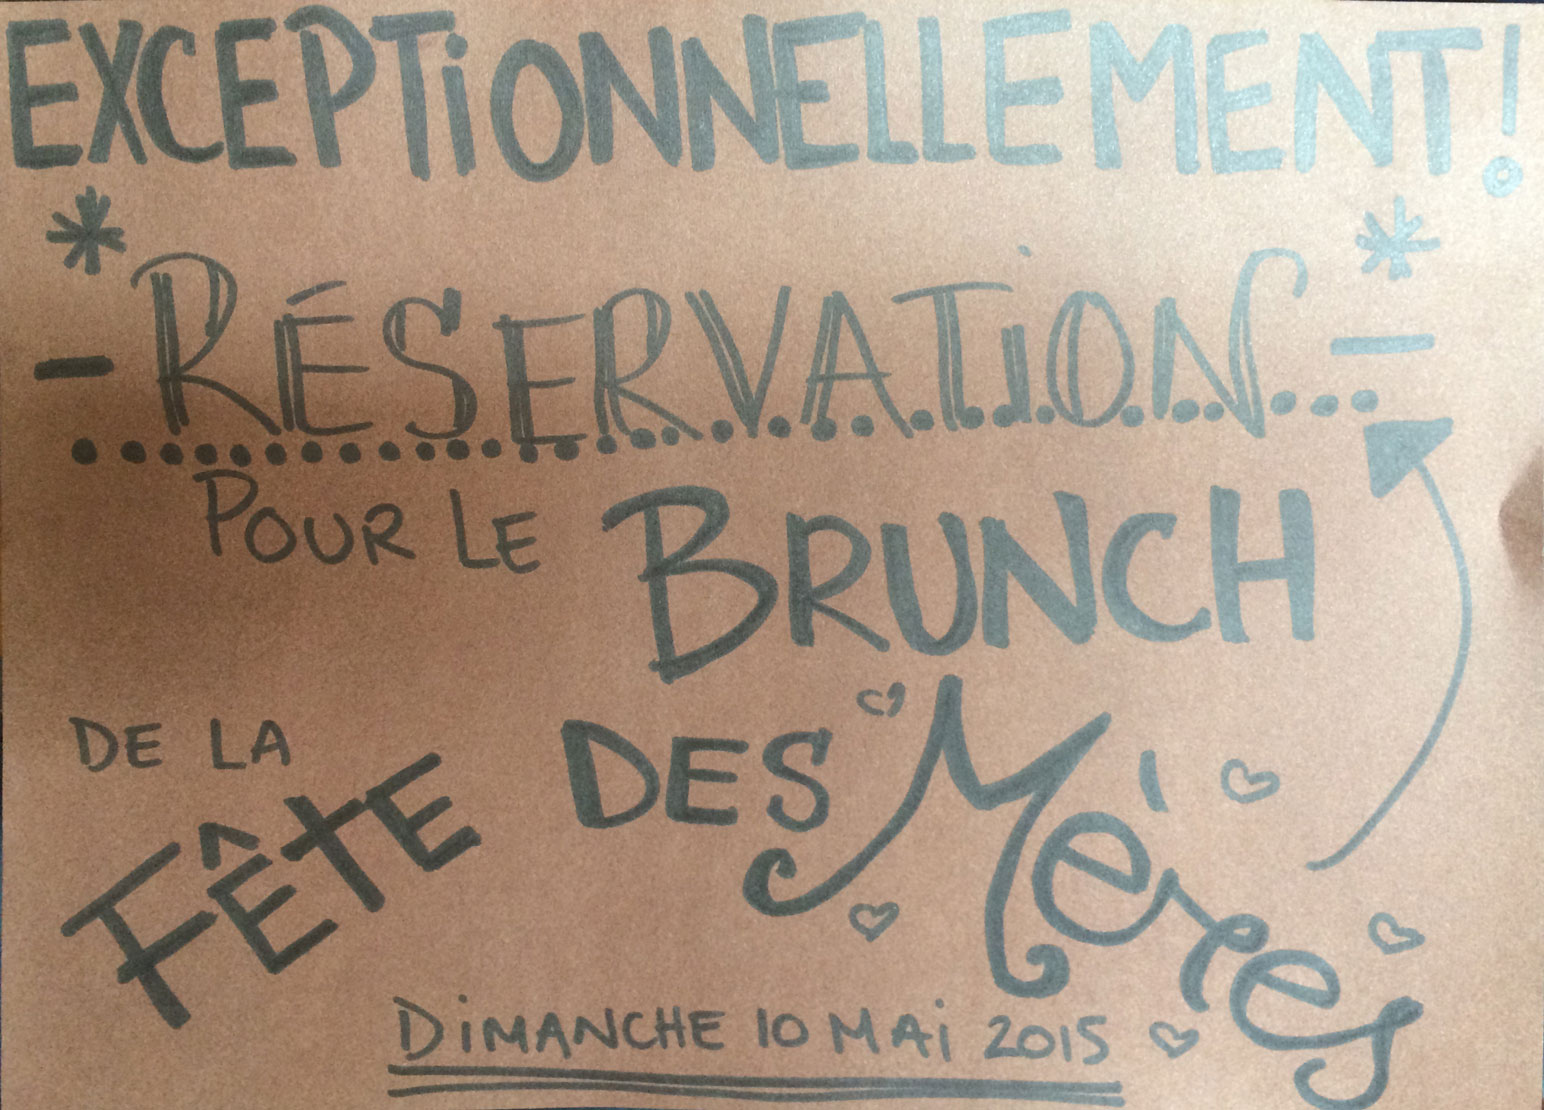 EXCEPTIONNELLEMENT!
* *
- RÉSERVATION -
POUR LE BRUNCH
DE LA FÊTE DES Mères
DIMANCHE 10 MAI 2015